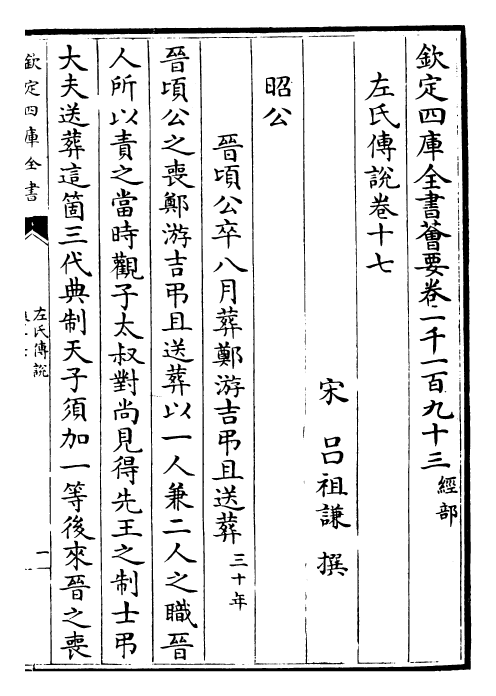 欽定四庫全書薈要卷一千一百九十三 經部
左氏傳說卷十七
宋 呂祖謙 撰
昭公
晉頃公卒八月葬鄭游吉弔且送葬 三十年
晉頃公之喪鄭游吉弔且送葬以一人兼二人之職晉
人所以責之當時觀子太叔對尚見得先王之制士弔
大夫送葬這箇三代典制天子須加一等後來晉之喪
欽定四庫全書
左氏傳說